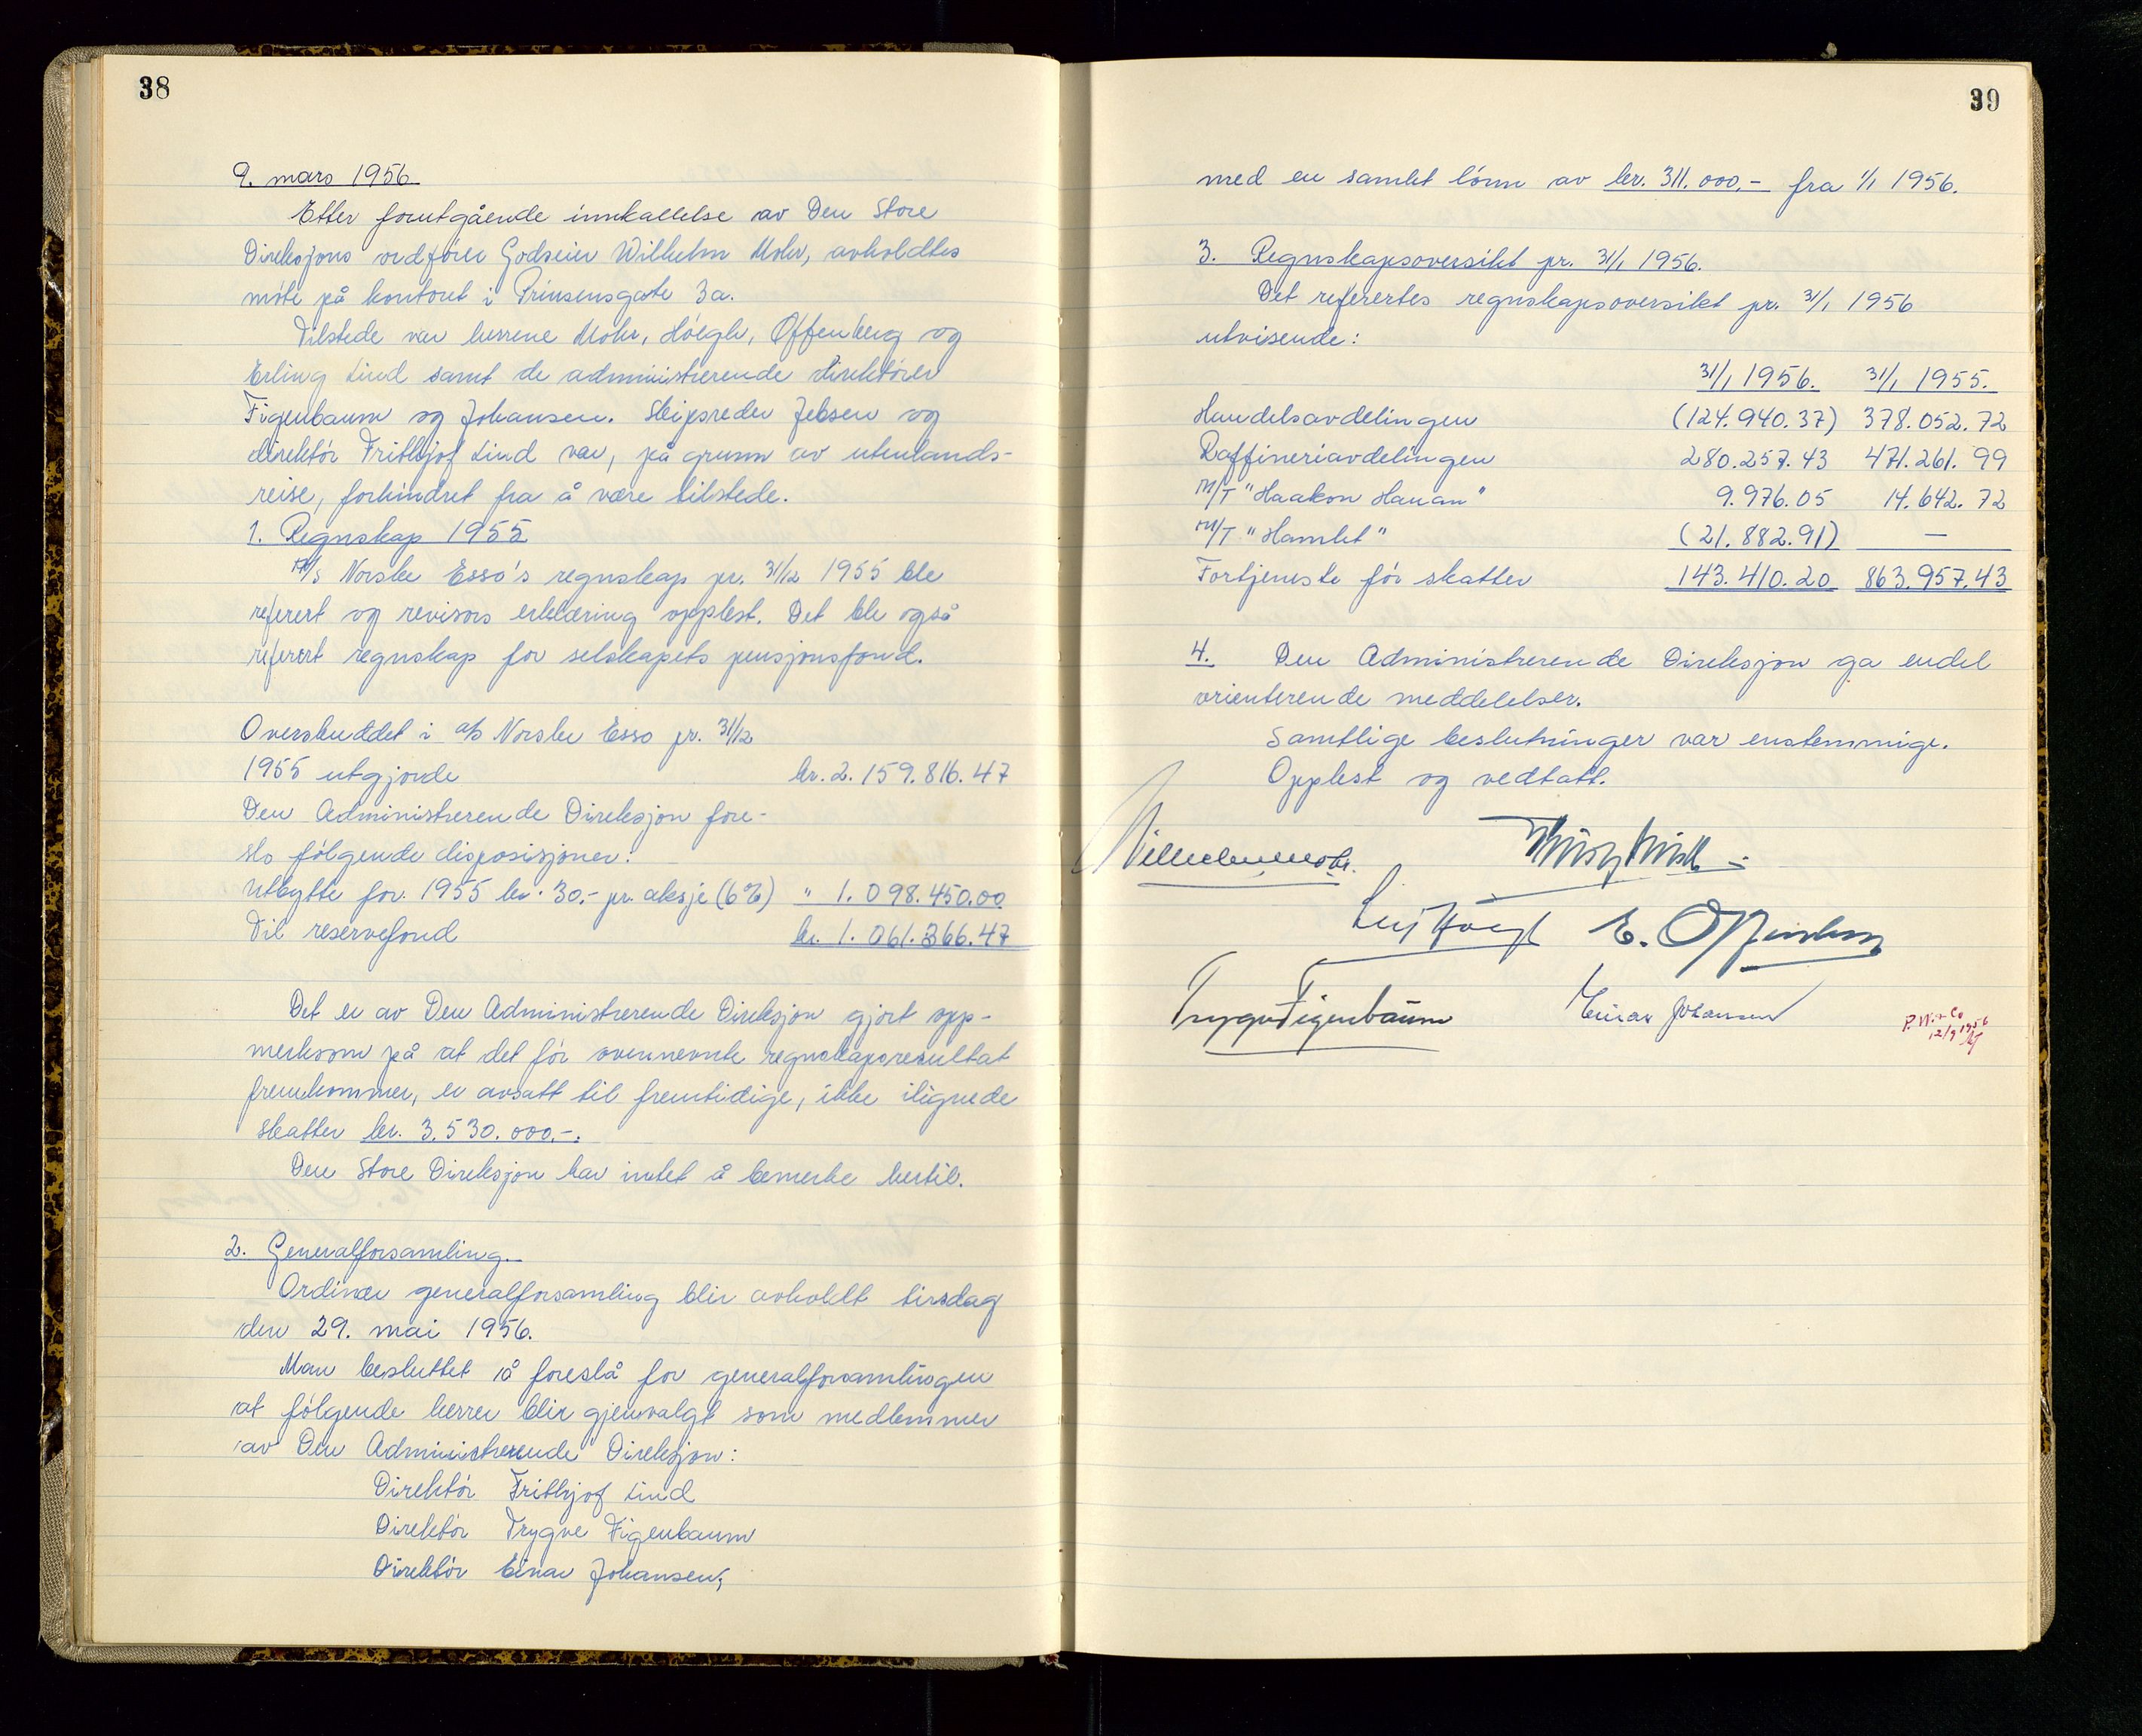 38
9. mars 1956
Etter forutgående innkallelse av Den Store
Direksjons ordfører Godseier Wilhelm Mohr, avholdtes
møte på kontoret i Prinsensgate 3a.
Tilstede var herrene Mohr, Höegh, Offenberg og
Erling Lind samt de administrerende direktører
Figenbaum og Johansen. Skipsreder Jebsen og
direktør Frithjof Lind var, på grunn av utenlands-
reise, forhindret fra å være tilstede.
1. Regnskap 1955
A/S Norske Esso's regnskap pr. 31/12 1955 ble
referert og revisors erklæring opplest. Det ble også
referert regnskap for selskapets pensjonsfond.
Overskuddet i a/s Norske Esso pr. 31/12
1955 utgjorde kr. 2.159.816.47
Den Administrerende Direksjon fore-
slo følgende disposisjoner:
Utbytte for 1955 kr. 30.- pr. aksje (6%) " 1.098.450.00
Til reservefond kr. 1.061.366.47
Det er av Den Administrerende Direksjon gjort opp-
merksom på at det før ovennevnte regnskapsresultat
fremkommer, er avsatt til fremtidige, ikke ilignede
skatter kr. 3.530.000.-.
Den Store Direksjon har intet å bemerke hertil.
2. Generalforsamling.
Ordinær generalforsamling blir avholdt tirsdag
den 29. mai 1956.
Man besluttet å foreslå for generalforsamlingen
at følgende herrer blir gjenvalgt som medlemmer
av Den Administrerende Direksjon:
Direktør Frithjof Lind
Direktør Trygve Figenbaum
Direktør Einar Johansen,
39
med en samlet lønn av kr. 311.000.- fra 1/1 1956.
3. Regnskapsoversikt pr. 31/1 1956.
Det referertes regnskapsoversikt pr. 31/1 1956
utvisende:
31/1 1956. 31/1 1955.
Handelsavdelingen (124.940.37) 378.052.72
Raffineriavdelingen 280.257.43 471.261.99
M/T "Haakon Hauan" 9.976.05 14.642.72
M/T "Hamlet" (21.882.91) —
Fortjeneste før skatter 143.410.20 863.957.43
4. Den Administrerende Direksjon ga endel
orienterende meddelelser.
Samtlige beslutninger var enstemmige.
Opplest og vedtatt.
Wilhelm Mohr.
Leif Höegh E. Offenberg
Trygve Figenbaum Einar Johansen
P. W. & Co
12/9 1956